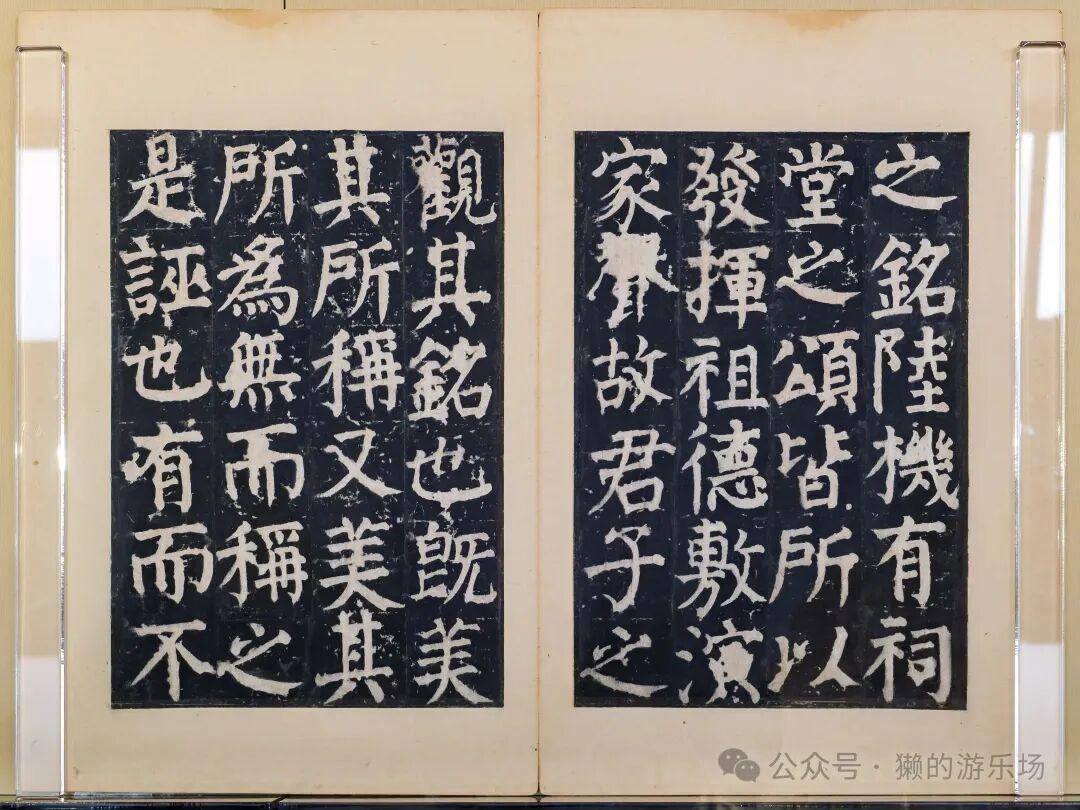 之銘陸機有祠
堂之頌皆所以
發揮祖德敷演
家聲故君子之
觀其銘也既美
其所稱又美其
所為無而稱之
是誣也有而不
公众号·獭的游乐场